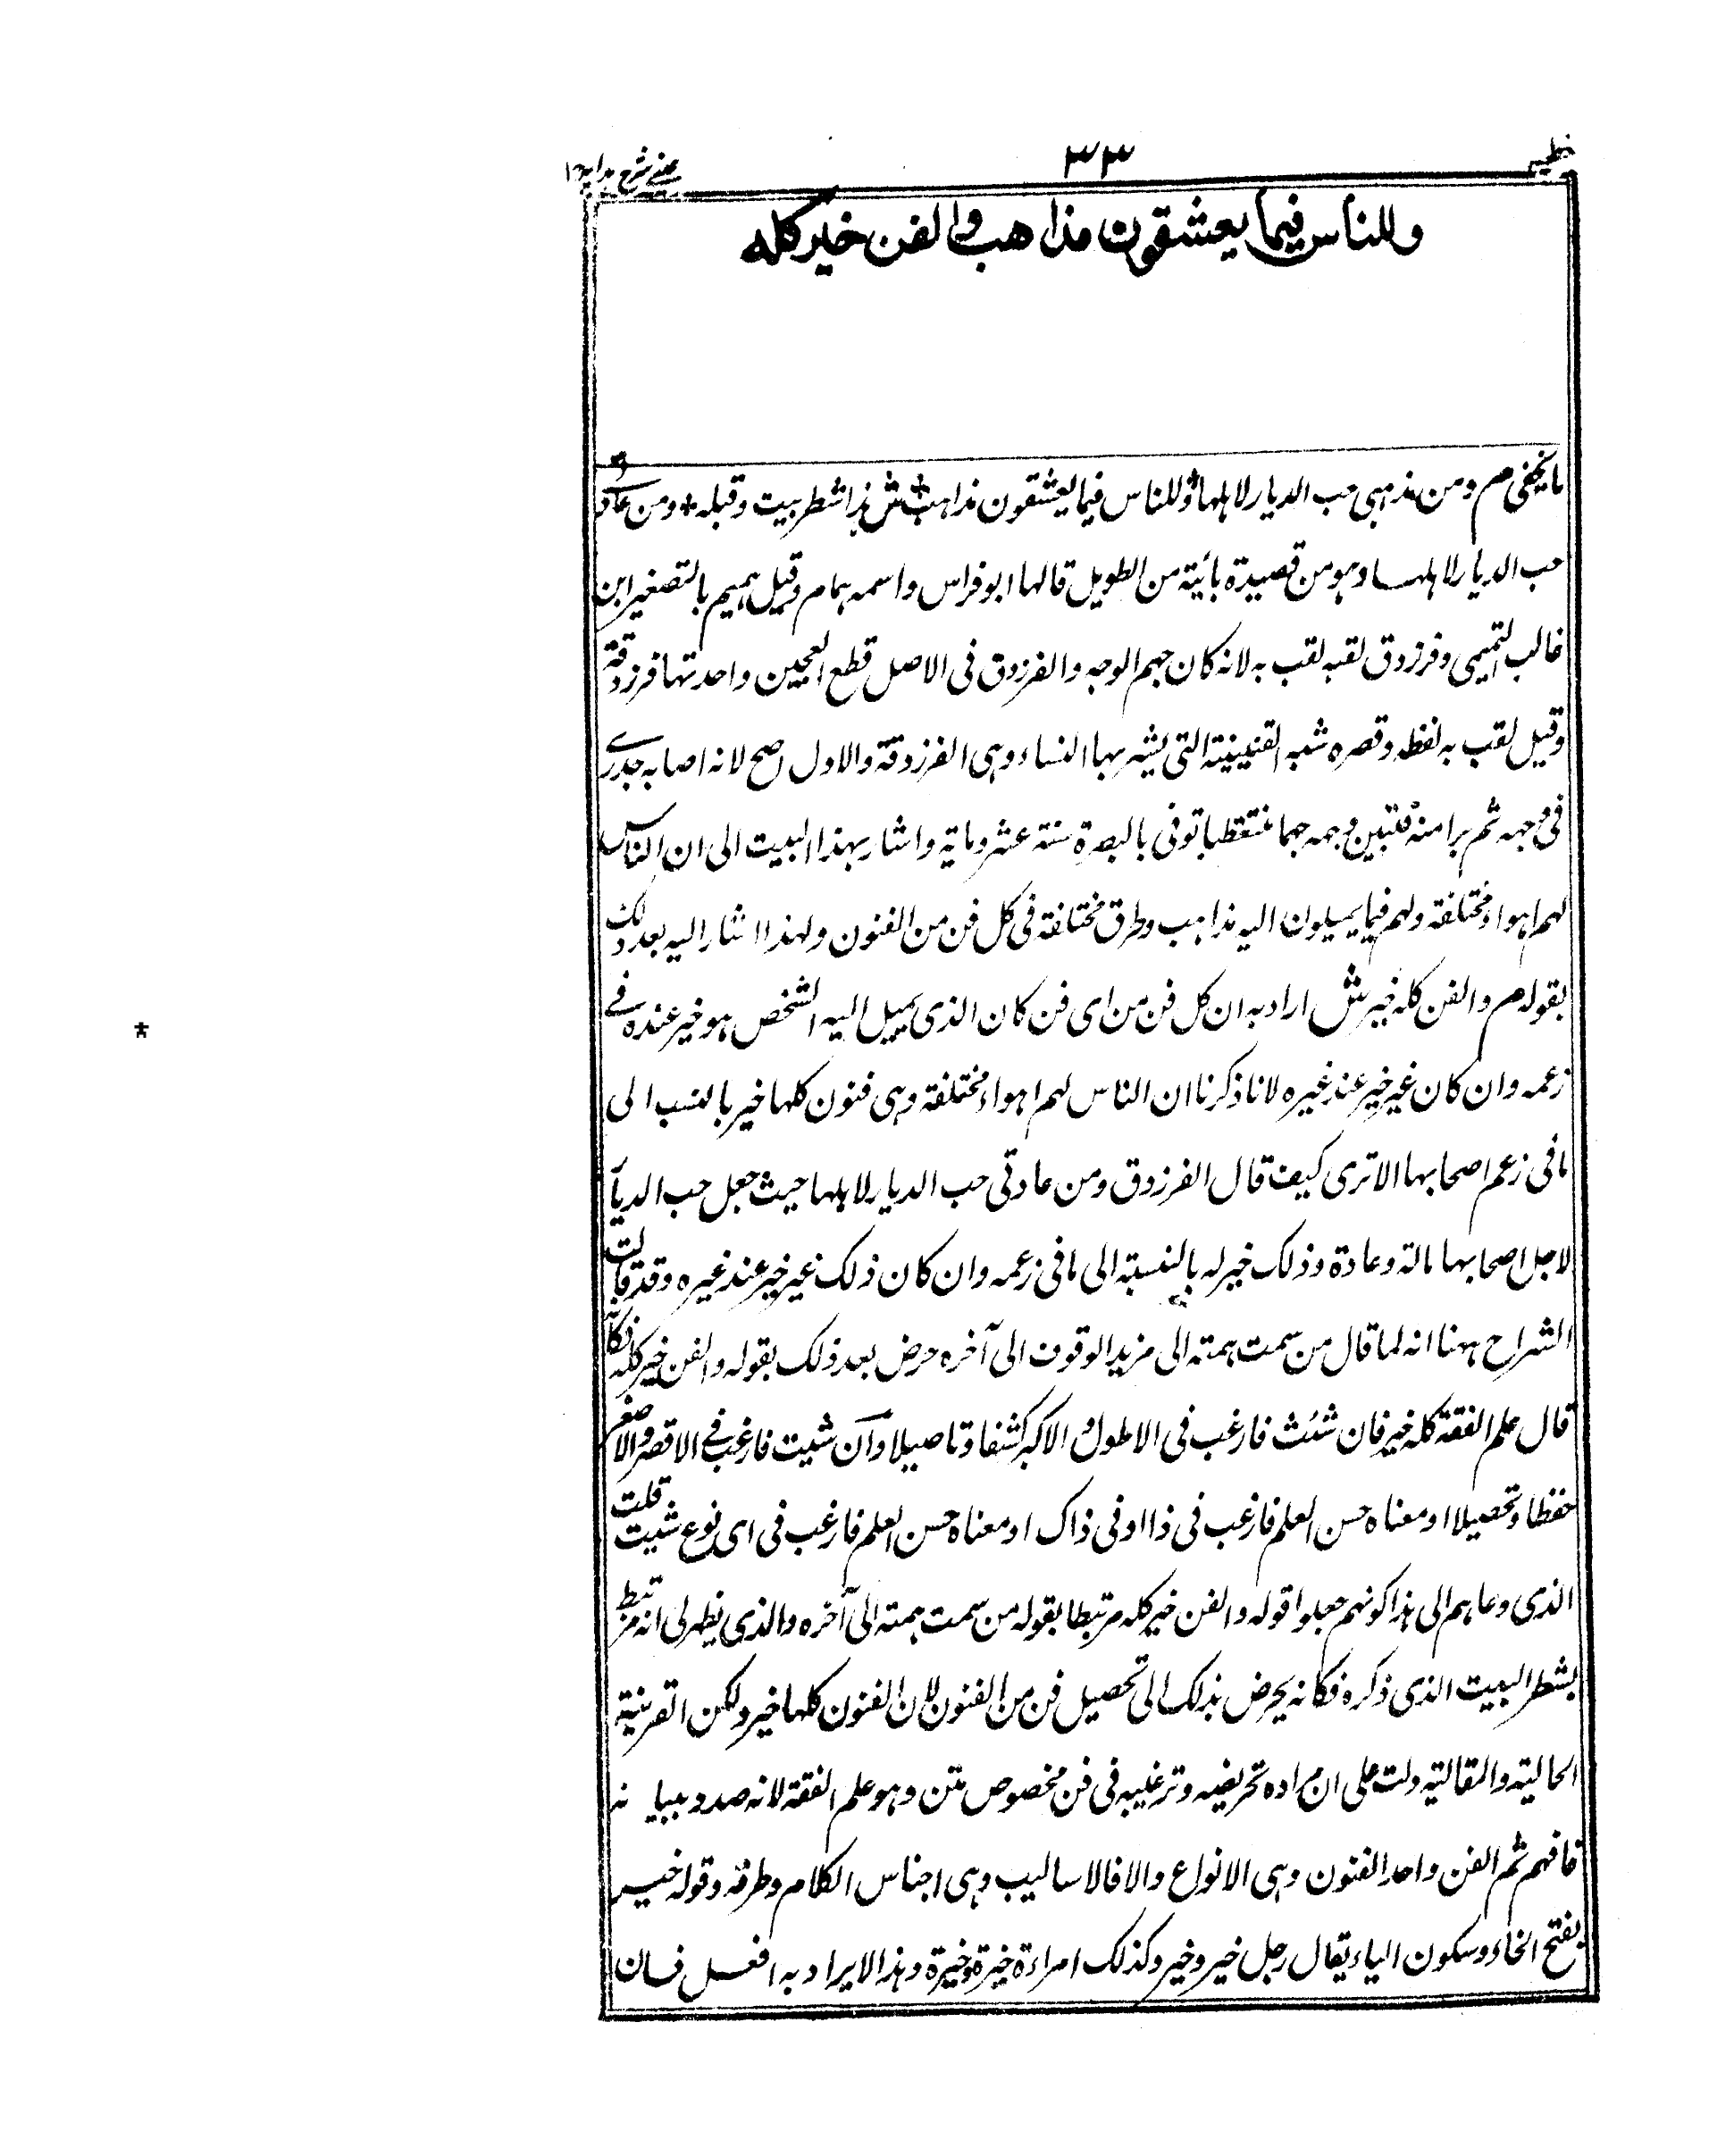 خطبه ٣٣ عيني شرح هدايه ١
وللناس فيما يعشقون مذاهب والفن خير كله
ما يخفى م ومن مذهبى حب الديار لاهلها وللناس فيما يعشقون مذاهب ش هذا شطر بيت وقبله ومن عادتى
حب الديار لاهلها وهو من قصيدة بائية من الطويل قالها ابو فراس واسمه همام وقيل هميم بالتصغير ابن
غالب التميمى وفرزدق لقبه لقب به لانه كان جهم الوجه والفرزدق فى الاصل قطع العجين واحدتها فرزدقة
وقيل لقب به لغلظه وقصره شبه القنينة التى يشربها النساء وهى الفرزدقة والاول اصح لانه اصابه جدرى
فى وجهه ثم برا منه فتبين وجهه جهما متغظبا توفى بالبصرة سنة عشر ومائة واشار بهذا البيت الى ان الناس
لهم اهواء مختلفة ولهم فيما يميلون اليه مذاهب وطرق مختلفة فى كل فن من الفنون ولهذا اشار اليه بعد ذلك
بقوله م والفن كله خير ش اراد به ان كل فن من اى فن كان الذى يميل اليه الشخص هو خير عنده فى
زعمه وان كان غير خير عند غيره لانا ذكرنا ان الناس لهم اهواء مختلفة وهى فنون كلها خير بالنسب الى
ما فى زعم اصحابها الا ترى كيف قال الفرزدق ومن عادتى حب الديار لاهلها حيث جعل حب الديار
لاجل اصحابها مالة وعادة وذلك خير له بالنسبة الى ما فى زعمه وان كان ذلك غير خير عند غيره وقد قالت
الشراح ههنا انه لما قال من سمت همته الى مزيد الوقوف الى آخره حرض بعد ذلك بقوله والفن خير كله فكانه
قال علم الفقه كله خير فان شئت فارغب فى الاطول والاكبر كشفا وتاصيلا وان شيت فارغب فى الاقصر والاصغر
حفظا وتحصيلا او معناه حسن العلم فارغب فى ذا او فى ذاك او معناه حسن العلم فارغب فى اى نوع شيت قلت
الذى دعاهم الى هذا كونهم جعلوا قوله والفن خير كله مرتبطا بقوله من سمت همته الى آخره والذى يظهر لى انه مرتبط
بشطر البيت الذى ذكره فكانه يحرض بذلك الى تحصيل فن من الفنون لان الفنون كلها خير ولكن القرينة
الحالية والمقالية دلت على ان مراده تحريضه وترغيبه فى فن مخصوص متن وهو علم الفقه لانه صدد ببيانه
فافهم ثم الفن واحد الفنون وهى الانواع والافالاساليب وهى اجناس الكلام وطرقه وقوله خير
بفتح الخاء وسكون الياء يقال رجل خير وخير وكذلك امراءة خيرة وخيرة وهذا لا يراد به افعل فان
*